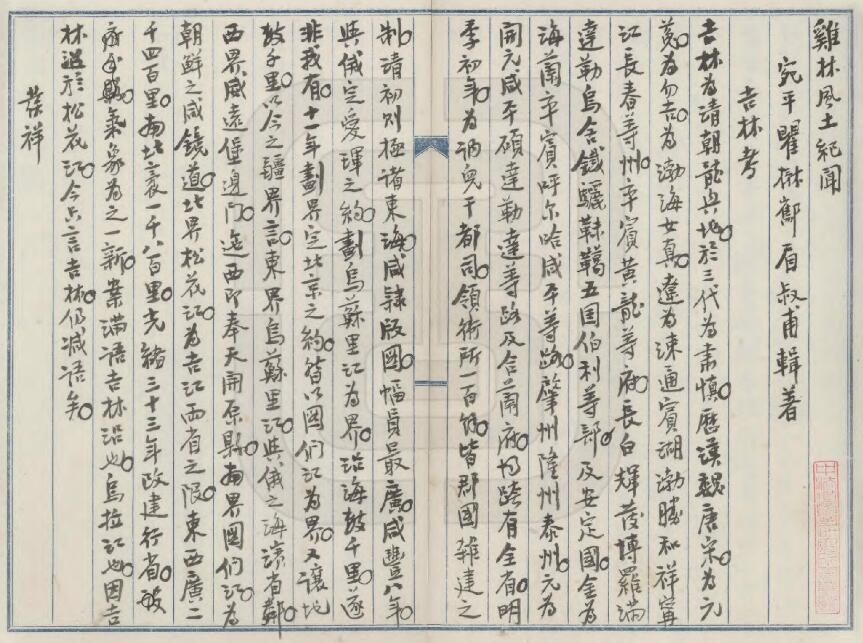 雞林風土紀聞
宛平瞿 鄺眉叔甫輯著
吉林考
吉林為清朝龍興地於三代為肅慎歷漢魏唐宋為元
菟為勿吉為渤海女真遼為涑通賓湖渤勝和祥寧
江長春等州率賓黃龍等府長白輝蒼博羅滿
達勒烏舍鐵驪靺鞨五国伯利等部及安定國金為
海蘭率賓呼尔哈咸平等路肇州隆州泰州元為
開元咸平碩達勒達等路及合蘭府均跨有全省明
季初年為訥兒干都司領衛所一百餘皆郡國雜建之
制清初則極諸東海咸隸版圖幅員最廣咸豐八年
與俄定愛琿之約劃烏蘇里江為界沿海数千里遂
非我有十一年劃界定北京之約皆以圖們江為界又讓地
数千里以今之疆界言東界烏蘇里江與俄之海濱省鄰
西界威遠堡邊門迤西即奉天開原縣南界圖們江為
朝鮮之咸鏡道北界松花江為吉江两省之限東西廣二
千四百里南北袤一千八百里光緒三十三年改建行省敏
氣象為之一新案滿語吉林沿也烏拉江也因吉
林沿於松花江今只言吉林仍減語矣
發祥